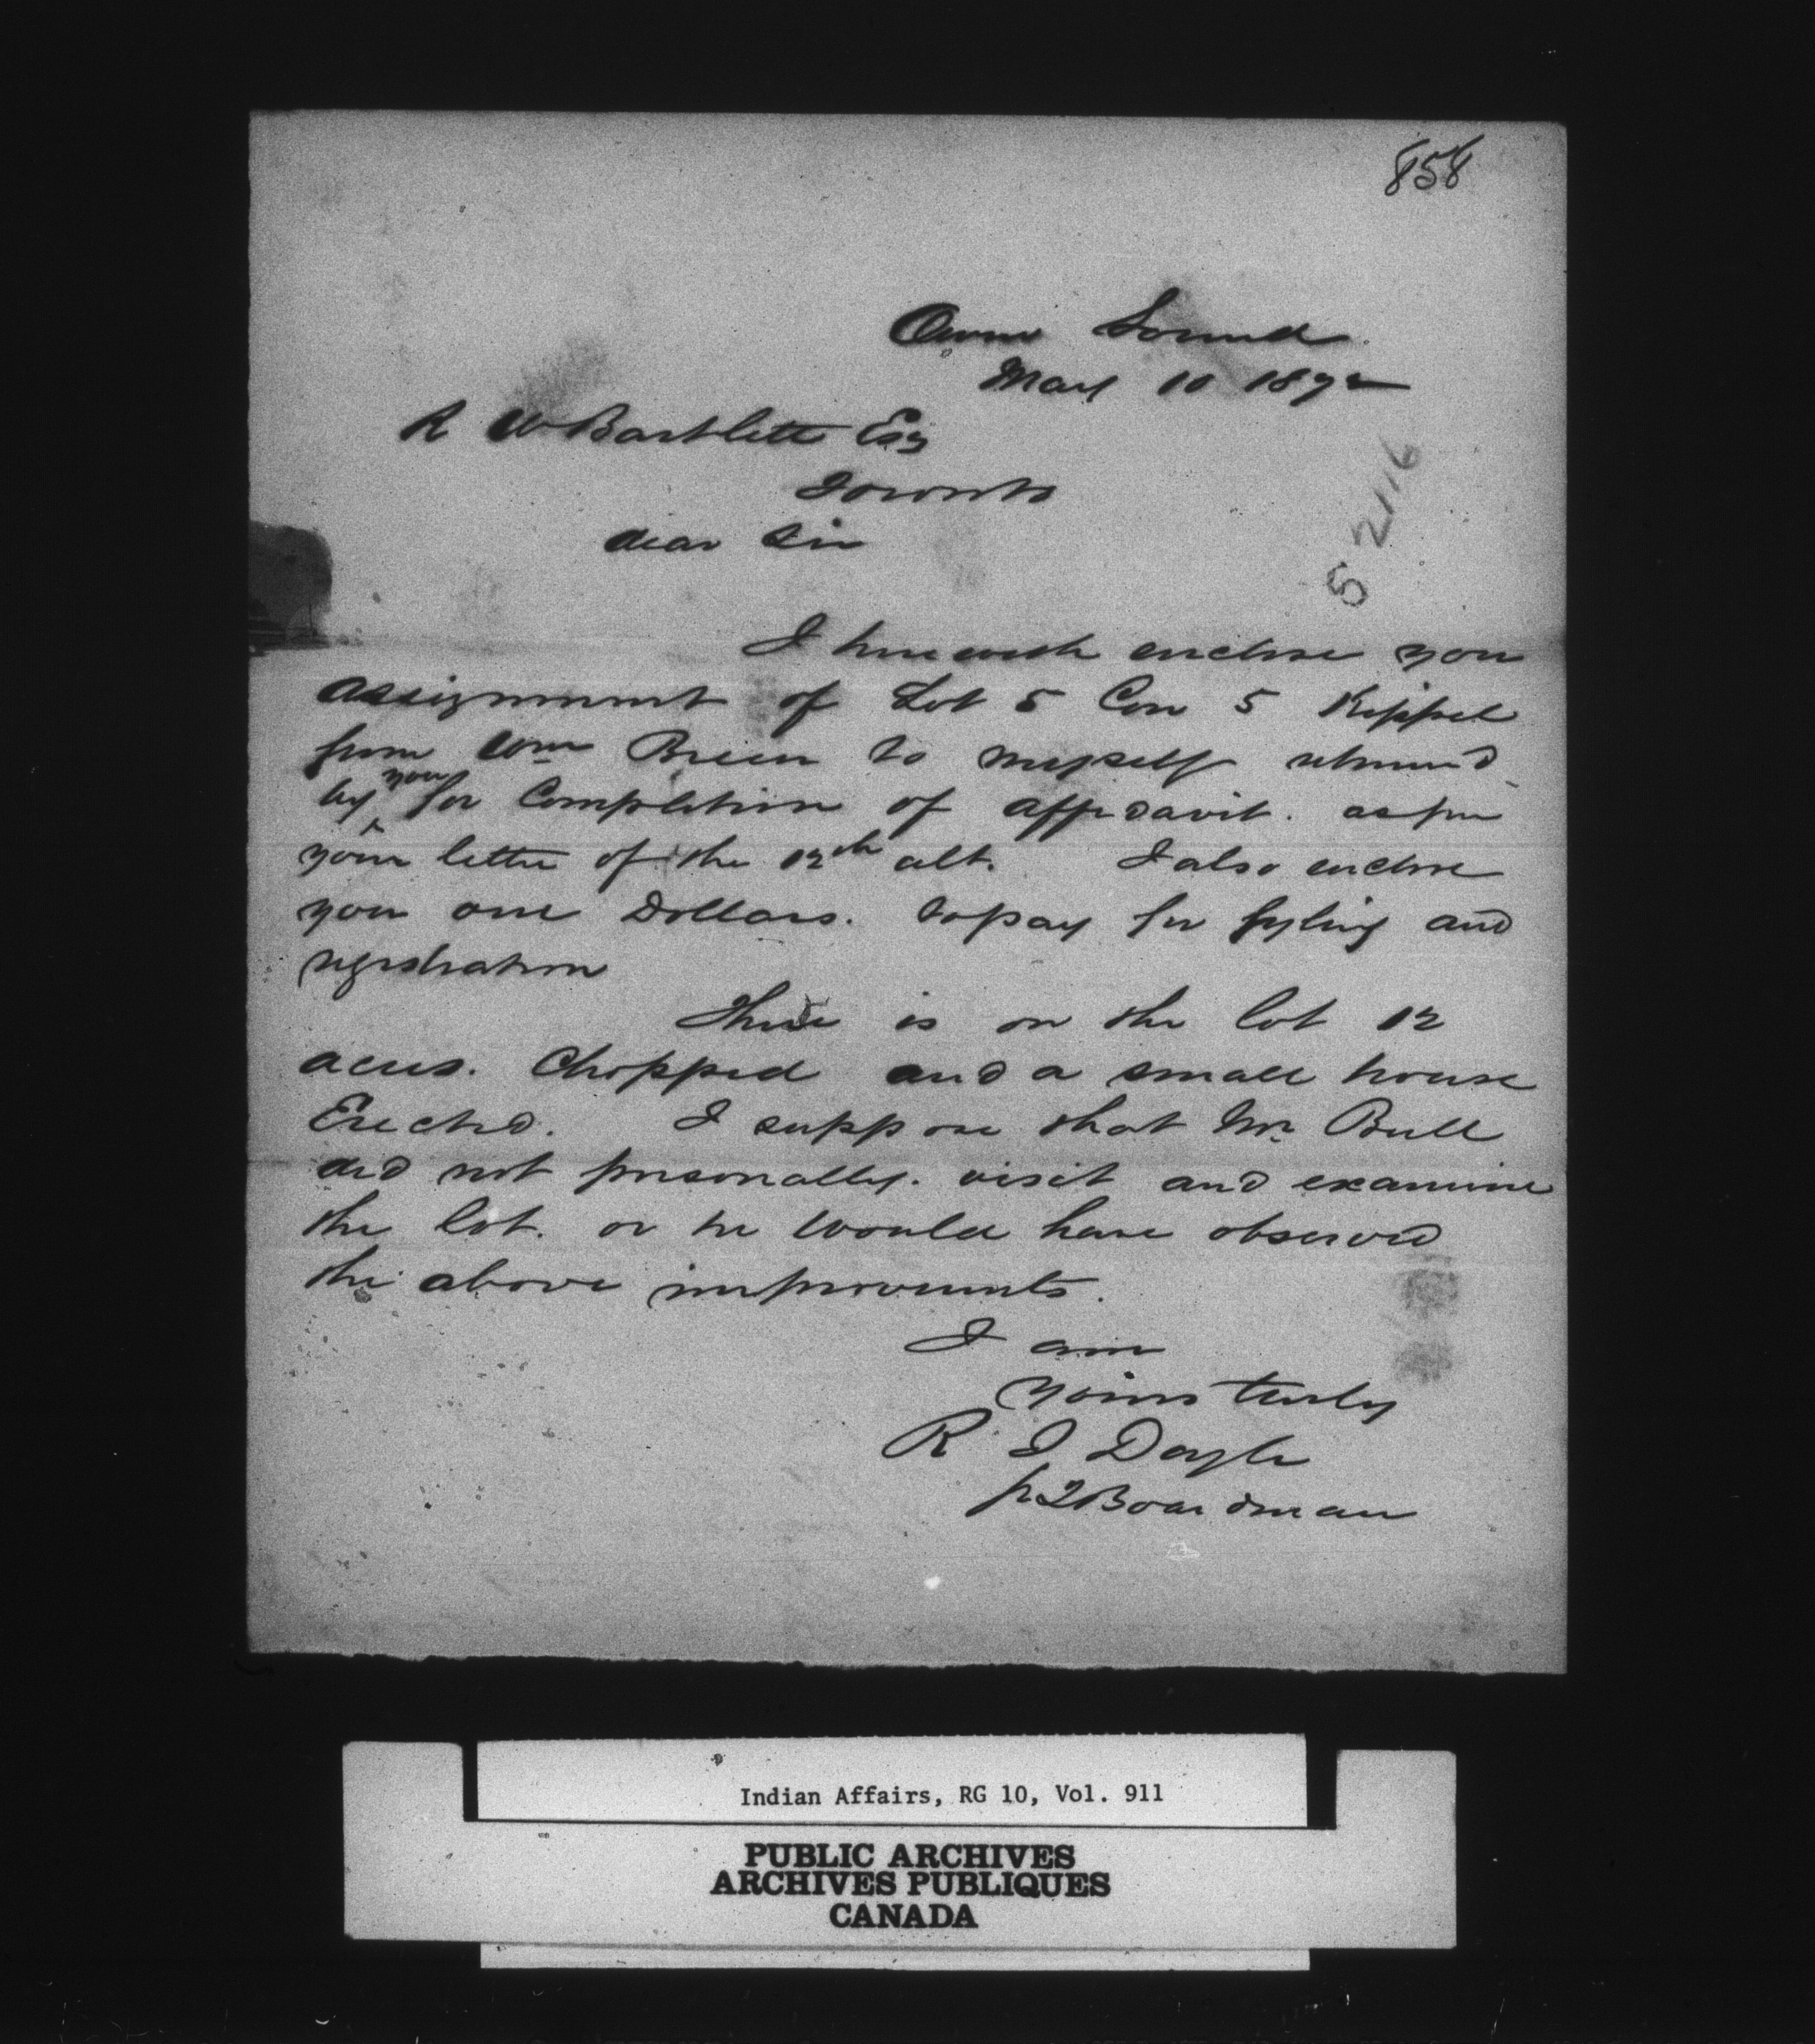 858
Owen Sound
May 10 1872
R W Bartlett Esq
Toronto
dear Sir
5 2116
I herewith enclose you
assignment of Lot 5 Con 5 Keppel
from Wm Breen to myself returned
by you for Completion of affidavit. as per
your letter of the 12th ult. I also enclose
you one Dollars. to pay for fyling and
registration
There is on the lot 12
acres. Chopped and a small house
Erected. I suppose that Mr Bull
did not personally. visit and examine
the lot. or he would have observed
the above improvements.
I am
yours truly
R J Doyle
pr Boardman
Indian Affairs, RG 10, Vol. 911
PUBLIC ARCHIVES
ARCHIVES PUBLIQUES
CANADA